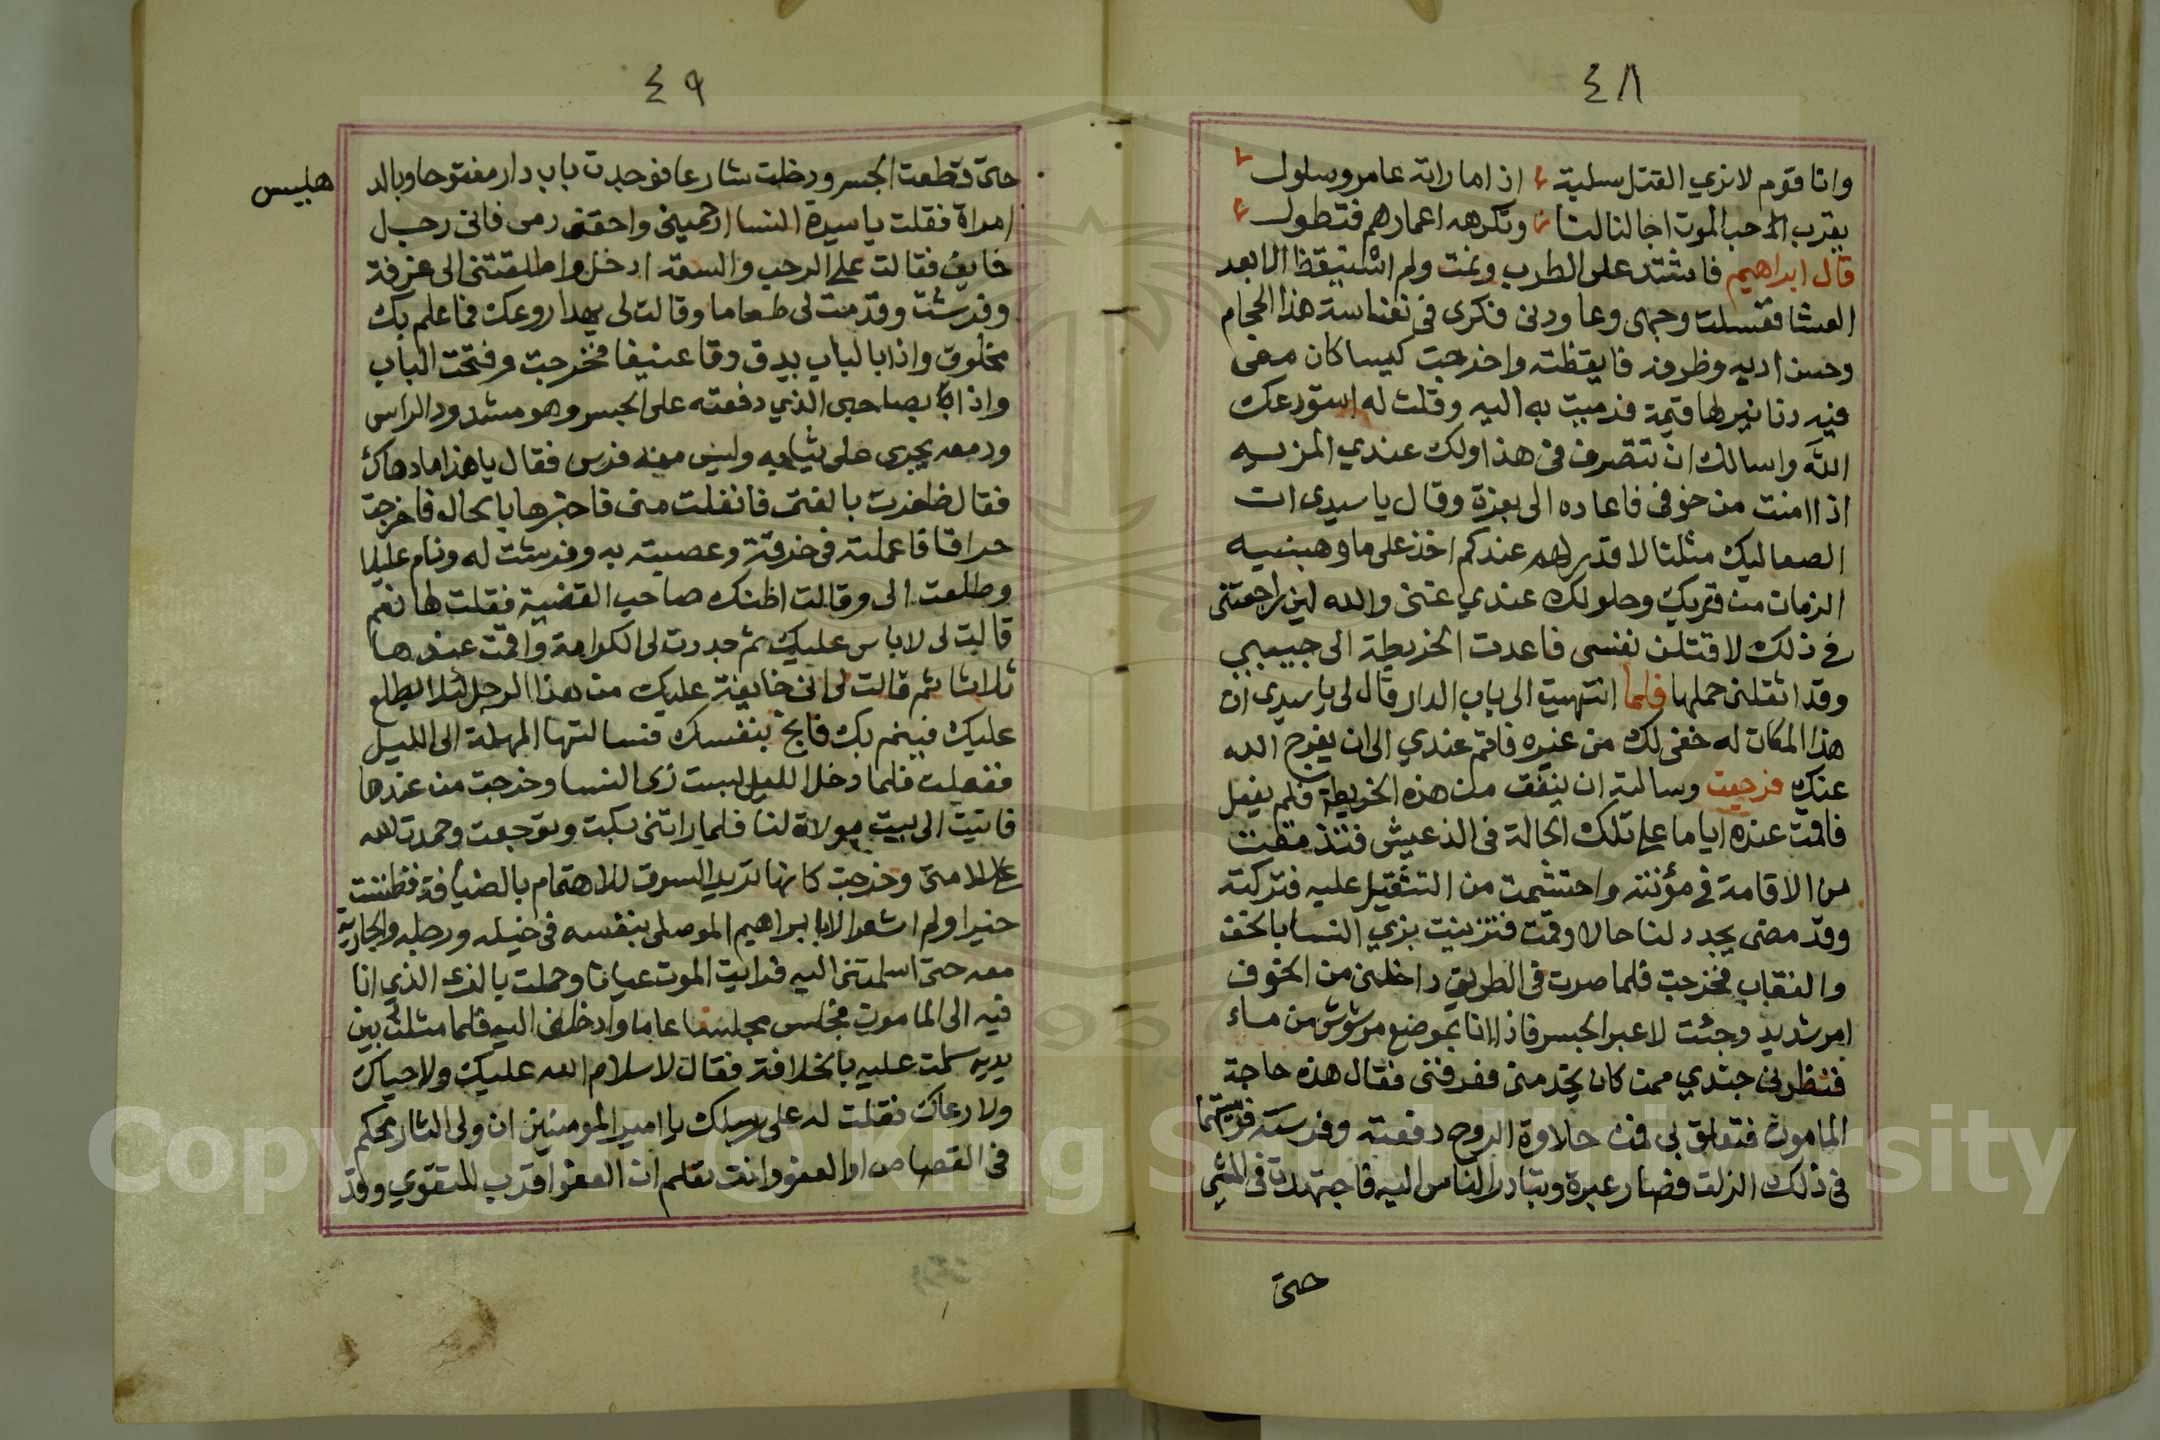 ٤٨
وانا قوم لا نري القتل سلبة اذ اما راته عامر وسلول
يقرب الاحب الموت اجالنا لنا وتكرهه اعمارهم فتطول
قال ابراهيم فاشتد على الطرب ونمت ولم استيقظ الا بعد
العشا فغسلت وجهى وعاودنى فكرى فى نفاسة هذا الحجام
وحسن ادبه وظرفه فايقظته واخرجت كيسا كان معى
فيه دنانير لها قيمة فرميت به اليه وقلت له استودعك
الله واسالك ان تتصرف فى هذا ولك عندي المزيه
اذا امنت من خوفى فاعاده الى بعزة وقال يا سيدى ات
الصعاليك مثلنا لا قدر لهم عندكم اخذ على ما وهبنيه
الزمان من قربك وحلولك عندي غنى والله لين راجعتنى
فى ذلك لاقتلن نفسى فاعدت الخريطة الى جيبى
وقد اثقلنى حملها فلما انتهيت الى باب الدار قال لى يا سيدى ان
هذا المكان له خفى لك من غيره فاقم عندي الى ان يفرج الله
عنك فرجعت وسالته ان ينفق من هذه الخريطة فلم يفعل
فاقمت عنده اياما على تلك الحالة فى الذ عيش فتذممت
من الاقامة فى مؤنته واحتشمت من التثقيل عليه فتركته
وقد مضى يجدد لنا حالا وقمت فتزينت بزي النسا بالخف
والنقاب فخرجت فلما صرت فى الطريق داخلنى من الخوف
امر شديد وجئت لاعبر الجسر فاذا انا بموضع مرشوش من ماء
فنظرنى جندي ممن كان يخدمنى فعرفنى فقال هذه حاجة
المامون فتعلق بى فمن حلاوة الروح دفعته وفرسه فرميتهما
فى ذلك الزلق فصار عبرة وتبادر الناس اليه فاجتهدت فى المشى
حتى
٤٩
حتى قطعت الجسر ودخلت شارعا فوجدت باب دار مفتوحا وبالد
هليس
امراة فقلت يا سيدة النسا ارحمينى واحقنى دمى فانى رجل
خايف فقالت على الرحب والسعة ادخل واطلعتنى الى غرفة
وفرشت وقدمت لى طعاما وقالت لى يهدا روعك فما علم بك
مخلوق واذا بالباب يدق دقا عنيفا فخرجت وفتحت الباب
واذا بصاحبى الذي دفعته على الجسر وهو مشدود الراس
ودمه يجرى على ثيابه وليس معه فرس فقال يا هذا ما دهاك
فقال ظفرت بالفتى فانفلت منى فاخبرها بالحال فاخرجت
حراقا فاعملته فى خرقة وعصبته به وفرشت له ونام عليلا
وطلعت الى وقالت اظنك صاحب القضية فقلت لها نعم
قالت لى لا باس عليك ثم جددت لى الكرامة واقمت عندها
ثلاثا ثم قالت لى انى خايفة عليك من هذا الرجل لئلا يطلع
عليك فينم بك فانج بنفسك فسالتها المهلة الى الليل
ففعلت فلما دخل الليل لبست زى النسا وخرجت من عندها
فاتيت الى بيت مولاة لنا فلما راتنى بكت وتوجعت وحمدت الله
على سلامتى وخرجت كانها تريد السوق للاهتمام بالضيافة فظننت
خيرا ولم اشعر الا بابراهيم الموصلى بنفسه فى خيله ورجله والجارية
معه حتى اسلمتنى اليه فرايت الموت عيانا وحملت بالذى الذي انا
فيه الى المامون فجلس مجلسا عاما وادخلنى اليه فلما مثلت بين
يديه سلمت عليه بالخلافة فقال لا سلام الله عليك ولا حياك
ولا رعاك فقلت له على رسلك يا امير المومنين ان ولى الثار محكم
فى القصاص او العفو وانت تعلم ان العفو اقرب للتقوي وقد
Copyright © King Saud University
1957